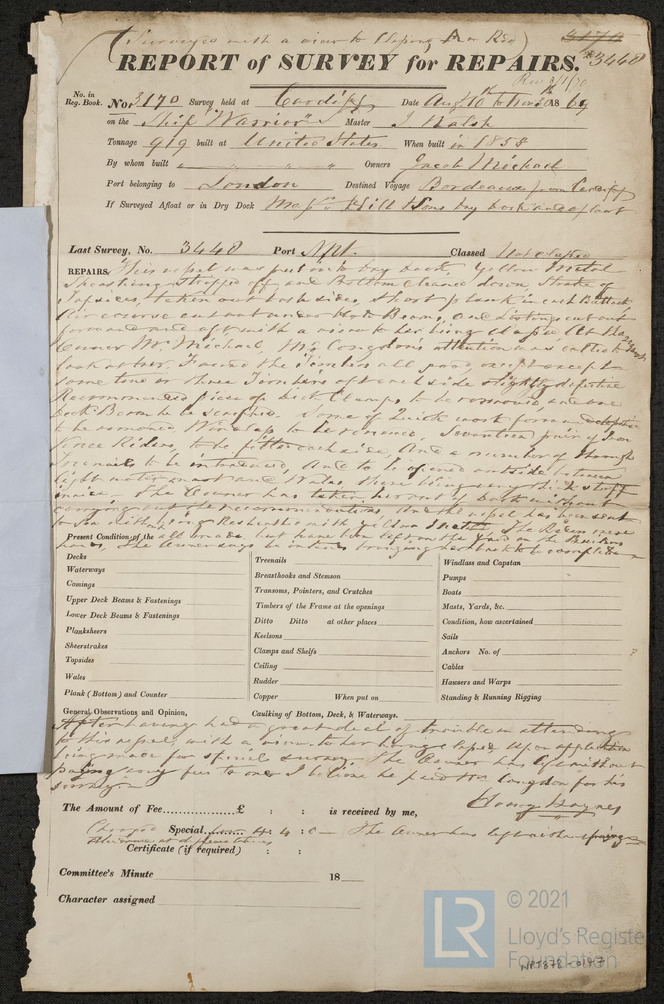 (Surveyed with a view to Classing A or Red)
4170
REPORT of SURVEY for REPAIRS. 3440
Rec 3/1/70
No. in Reg. Book. No. 3170 Survey held at Cardiff Date Aug 10th to Nov 30th 1869
on the Ship "Warrior" Master J Walsh
Tonnage 919 built at United States When built in 1853
By whom built " " " " Owners Jacob Michael
Port belonging to London Destined Voyage Bordeaux from Cardiff
If Surveyed Afloat or in Dry Dock Messrs Hill & Sons Dry Dock and afloat
Last Survey, No. 3440 Port Npt. Classed Not classed
REPAIRS. This vessel was put into Dry Dock, Yellow Metal
Sheathing stripped off and Bottom cleaned down, Strake of
Topsides, taken out both sides, short plank in each Buttock
Air course cut out under Hold Beams, and Listings cut out
forward and aft with a view to her being classed A at the
Owner Mr Michael, Mr Congdon's attention was called to
look at her. Found the Timbers all good except
some two or three Timbers aft each side slightly defective
Recommended piece of Deck Clamps to be removed, and one
Deck Beam to be some of Quick work forward
to be removed Windlass to be renewed, Seventeen pair of Iron
Force Riders, to be fitted each side, And a number of through
Treenails to be introduced, And to be opened outside between
light water mark and Wales, there being very thick stuff
inside. The Owner has taken her out of dock without
carrying out the recommendations, And the vessel has been sent
to Sea without being Resheathed with yellow Metal The Riders were
all made, but have been left on the yard on the Builders
hands, The Owner says he intends bringing her back to be completed
Present Condition of the
Decks
Waterways
Comings
Upper Deck Beams & Fastenings
Lower Deck Beams & Fastenings
Planksheers
Sheerstrakes
Topsides
Wales
Plank (Bottom) and Counter
Treenails
Breasthooks and Stemson
Transoms, Pointers, and Crutches
Timbers of the Frame at the openings
Ditto Ditto at other places
Keelsons
Clamps and Shelfs
Ceiling
Rudder
Copper When put on
Windlass and Capstan
Pumps
Boats
Masts, Yards, &c.
Condition, how ascertained
Sails
Anchors No. of ?
Cables
Hawsers and Warps
Standing & Running Rigging
General Observations and Opinion, Caulking of Bottom, Deck, & Waterways.
After having had a great deal of trouble in attending
to this vessel with a view to her being classed upon application
being made for special survey. The Owner has left without
paying any fees to one, I believe he paid Mr Congdon for his
survey
Henry Haynes
The Amount of Fee..................£ : : is received by me,
Charged Special......... 4 : 4 : 0 — The Owner has left without paying
at different times
Certificate (if required) : :
Committee's Minute 18
Character assigned
LR © 2021
Lloyd's Register
Foundation
NPT372-0147